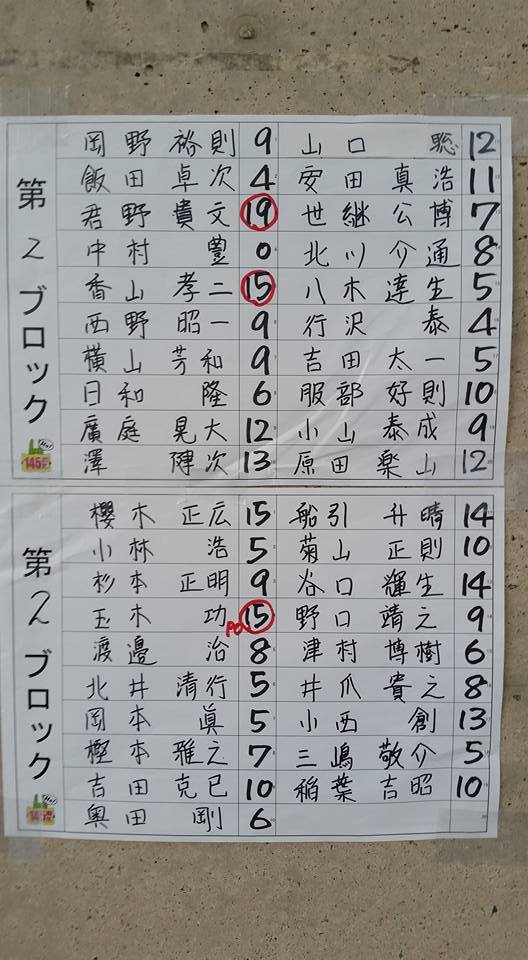 第2ブロック
岡野裕則 9 山口聡 12
飯田卓次 4 安田真浩 11
君野貴文 19 世継公博 7
中村豊 0 北川介通 8
香山孝二 15 八木達生 5
西野昭一 9 行沢泰 4
横山芳和 9 吉田太一 5
日和隆 6 服部好則 10
廣庭晃大 12 小山泰成 9
澤健次 13 原田楽山 12
145
第2ブロック
櫻木正広 15 船引升晴 14
小林浩 5 菊山正則 10
杉本正明 9 谷口輝生 14
玉木功 PO 15 野口靖之 9
渡邉治 8 津村博樹 6
北井清行 5 井爪貴之 8
岡本眞 5 小西創 13
樫本雅之 7 三嶋敬介 5
吉田克已 10 稲葉吉昭 10
奥田剛 6